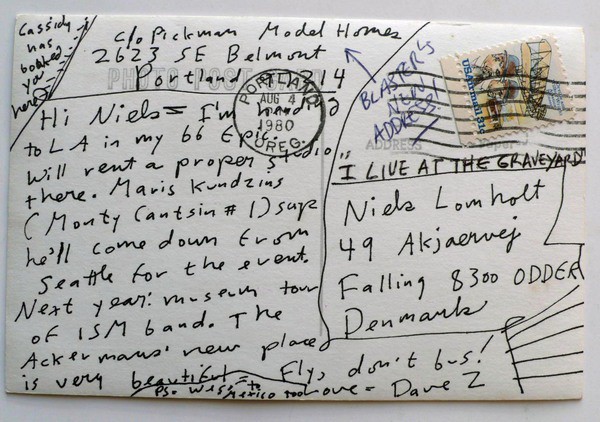 Cassidy
has
booked
you
here
c/o Pickman Model Homes
2623 SE Belmont
Portland 97214
PHOTO POST CARD
PORTLAND
AUG 4
PM
1980
OREG.
USAirmail 31c
BLASTER'S
NEW
ADDRESS
ADDRESS
Hi Niels = I'm
to LA in my 66 Epic
will rent a proper studio
there. Maris Kundzins
(Monty Cantsin #1) says
he'll come down from
Seattle for the event.
Next year: museum tour
of ISM band. The
Ackermans' new place
is very beautiful = Fly, don't bus!
Ps= to
Mexico too
Love = Dave Z
"I LIVE AT THE GRAVEYARD"
Niels Lomholt
49 Akjaervej
Falling 8300 ODDER
Denmark